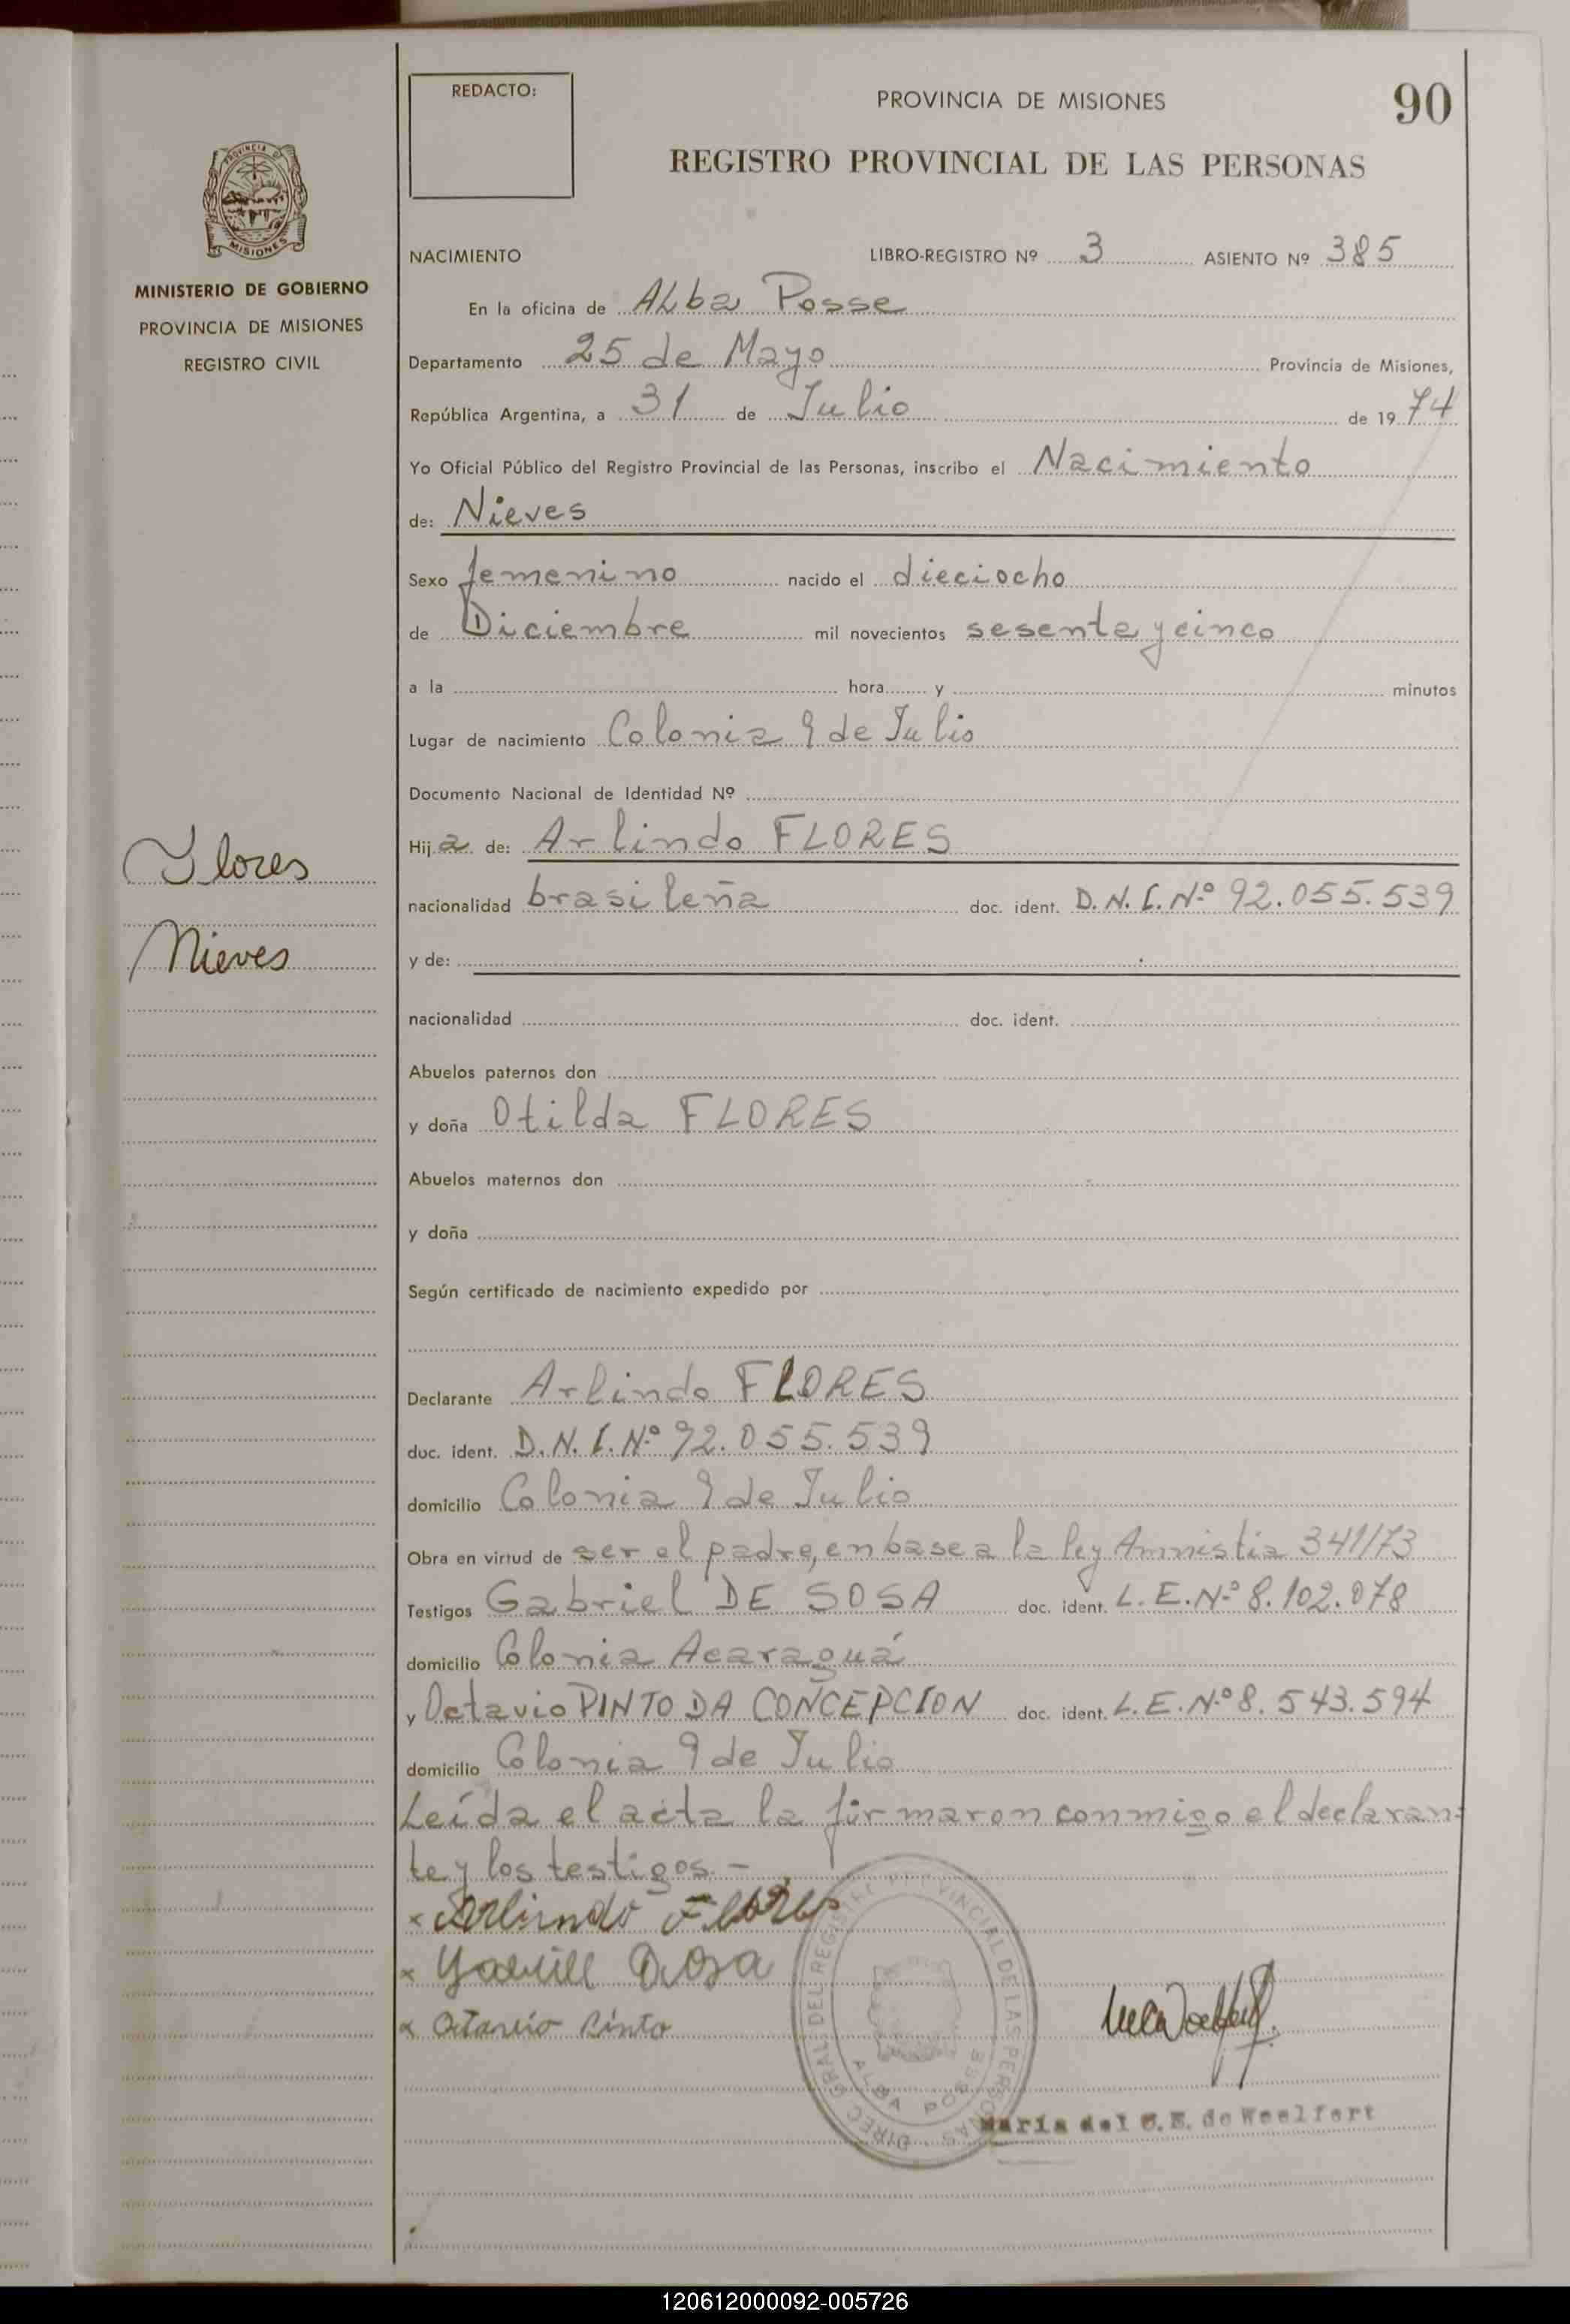 REDACTO:
PROVINCIA DE MISIONES
90
REGISTRO PROVINCIAL DE LAS PERSONAS
PROVINCIA DE
MISIONES
MINISTERIO DE GOBIERNO
PROVINCIA DE MISIONES
REGISTRO CIVIL
Flores
Nieves
NACIMIENTO LIBRO-REGISTRO Nº 3 ASIENTO Nº 385
En la oficina de ALba Posse
Departamento 25 de Mayo Provincia de Misiones,
República Argentina, a 31 de Julio de 19 74
Yo Oficial Público del Registro Provincial de las Personas, inscribo el Nacimiento
de: Nieves
Sexo femenino nacido el dieciocho
de Diciembre mil novecientos sesenta y cinco
a la hora y minutos
Lugar de nacimiento Colonia 9 de Julio
Documento Nacional de Identidad Nº
Hij a de: Arlindo FLORES
nacionalidad brasileña doc. ident. D.N.I.Nº 92.055.539
y de:
nacionalidad doc. ident.
Abuelos paternos don
y doña Otilda FLORES
Abuelos maternos don
y doña
Según certificado de nacimiento expedido por
Declarante Arlindo FLORES
doc. ident. D.N.I.Nº 92.055.539
domicilio Colonia 9 de Julio
Obra en virtud de ser el padre, en base a la ley Amnistia 341/73
Testigos Gabriel DE SOSA doc. ident. L.E.Nº 8.102.078
domicilio Colonia Acaraguá
y Octavio PINTO DA CONCEPCION doc. ident. L.E.Nº 8.543.594
domicilio Colonia 9 de Julio
Leída el acta la firmaron conmigo el declaran-
te y los testigos.-
x Arlindo Flores
x
x Octavio Pinto
DIREC. GRAL. DEL REGISTRO PROVINCIAL DE LAS PERSONAS
ALBA POSSE
María del C. E. de Woelfert
120612000092-005726